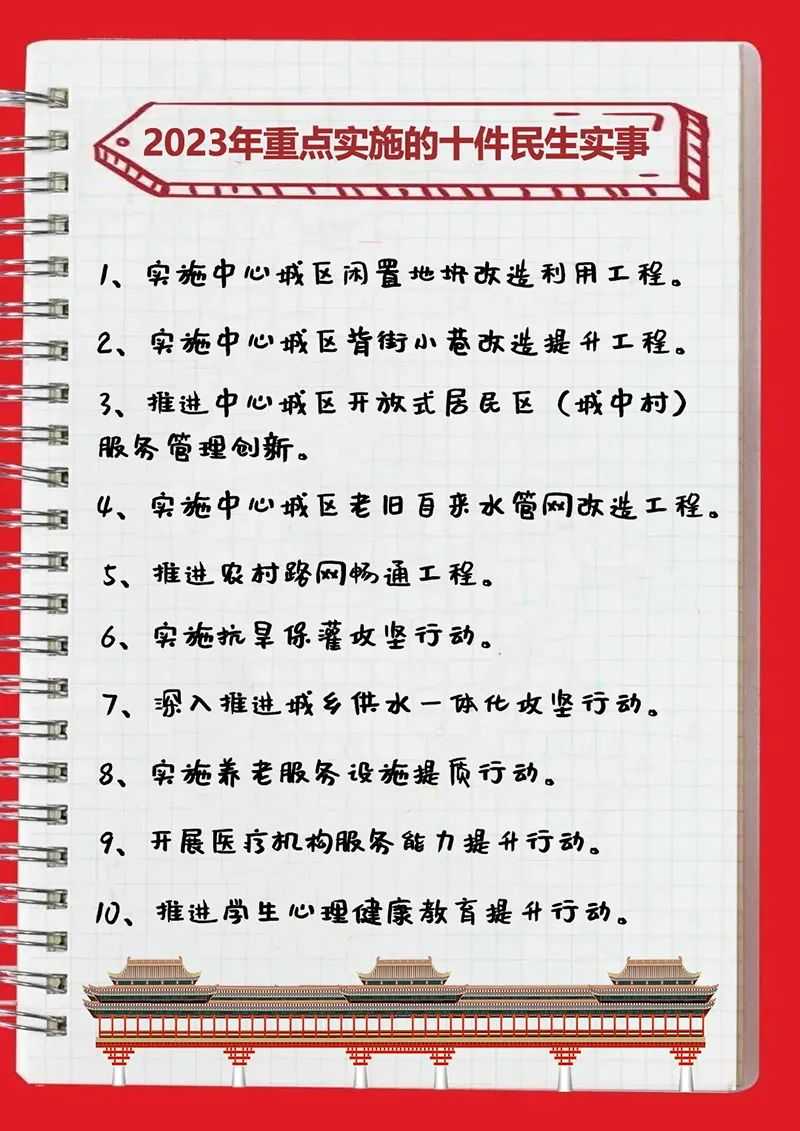 2023年重点实施的十件民生实事
1、实施中心城区闲置地块改造利用工程。
2、实施中心城区背街小巷改造提升工程。
3、推进中心城区开放式居民区（城中村）
服务管理创新。
4、实施中心城区老旧自来水管网改造工程。
5、推进农村路网畅通工程。
6、实施抗旱保灌攻坚行动。
7、深入推进城乡供水一体化攻坚行动。
8、实施养老服务设施提质行动。
9、开展医疗机构服务能力提升行动。
10、推进学生心理健康教育提升行动。